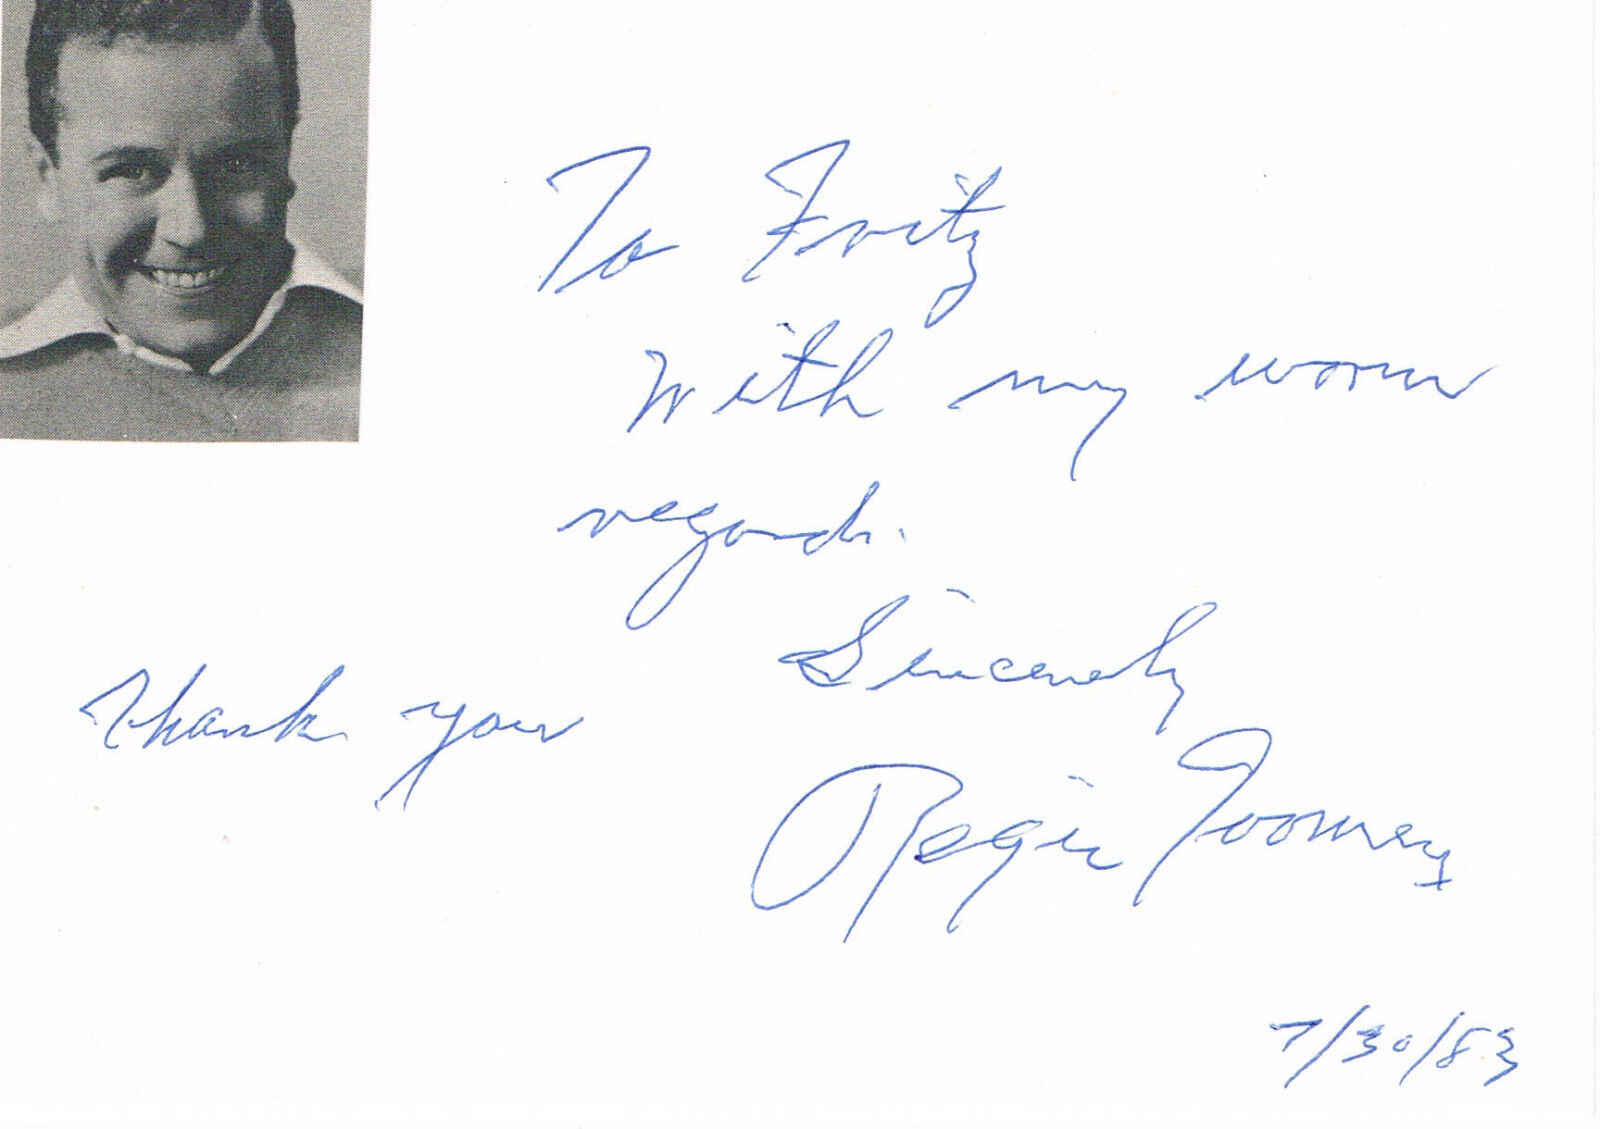 To Fritz
With my warm
regards.
Sincerely
Thank you
Regis Toomey
7/30/83